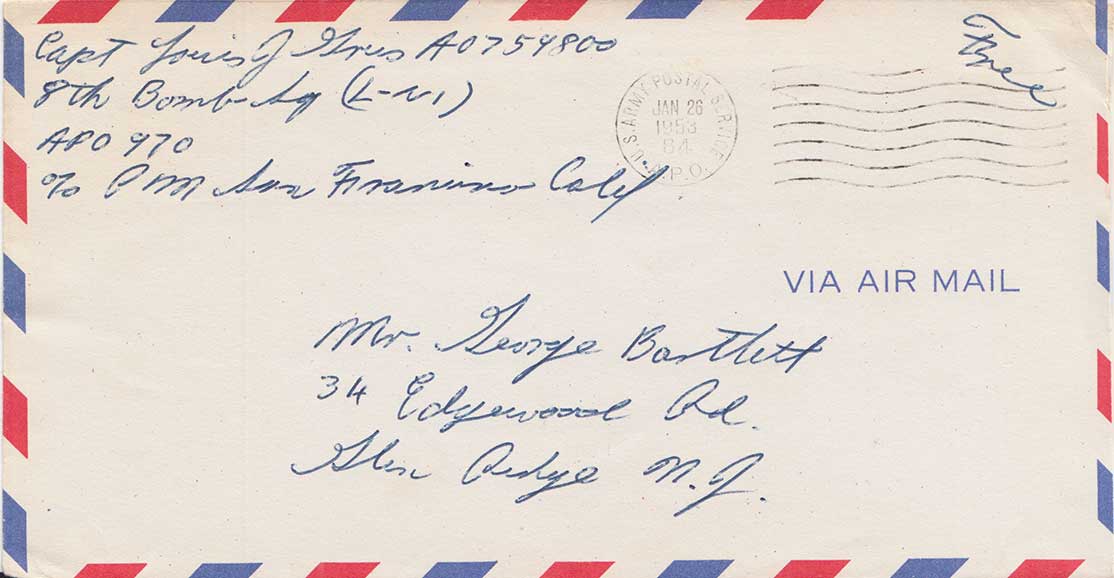 Capt Louis J Gries AO759800
8th Bomb Sq (L-NI)
APO 970
c/o PM San Francisco Calif
Free
U.S. ARMY POSTAL SERVICE
JAN 26
1953
64
A.P.O.
VIA AIR MAIL
Mr. George Bartlett
34 Edgewood Rd.
Glen Ridge N.J.